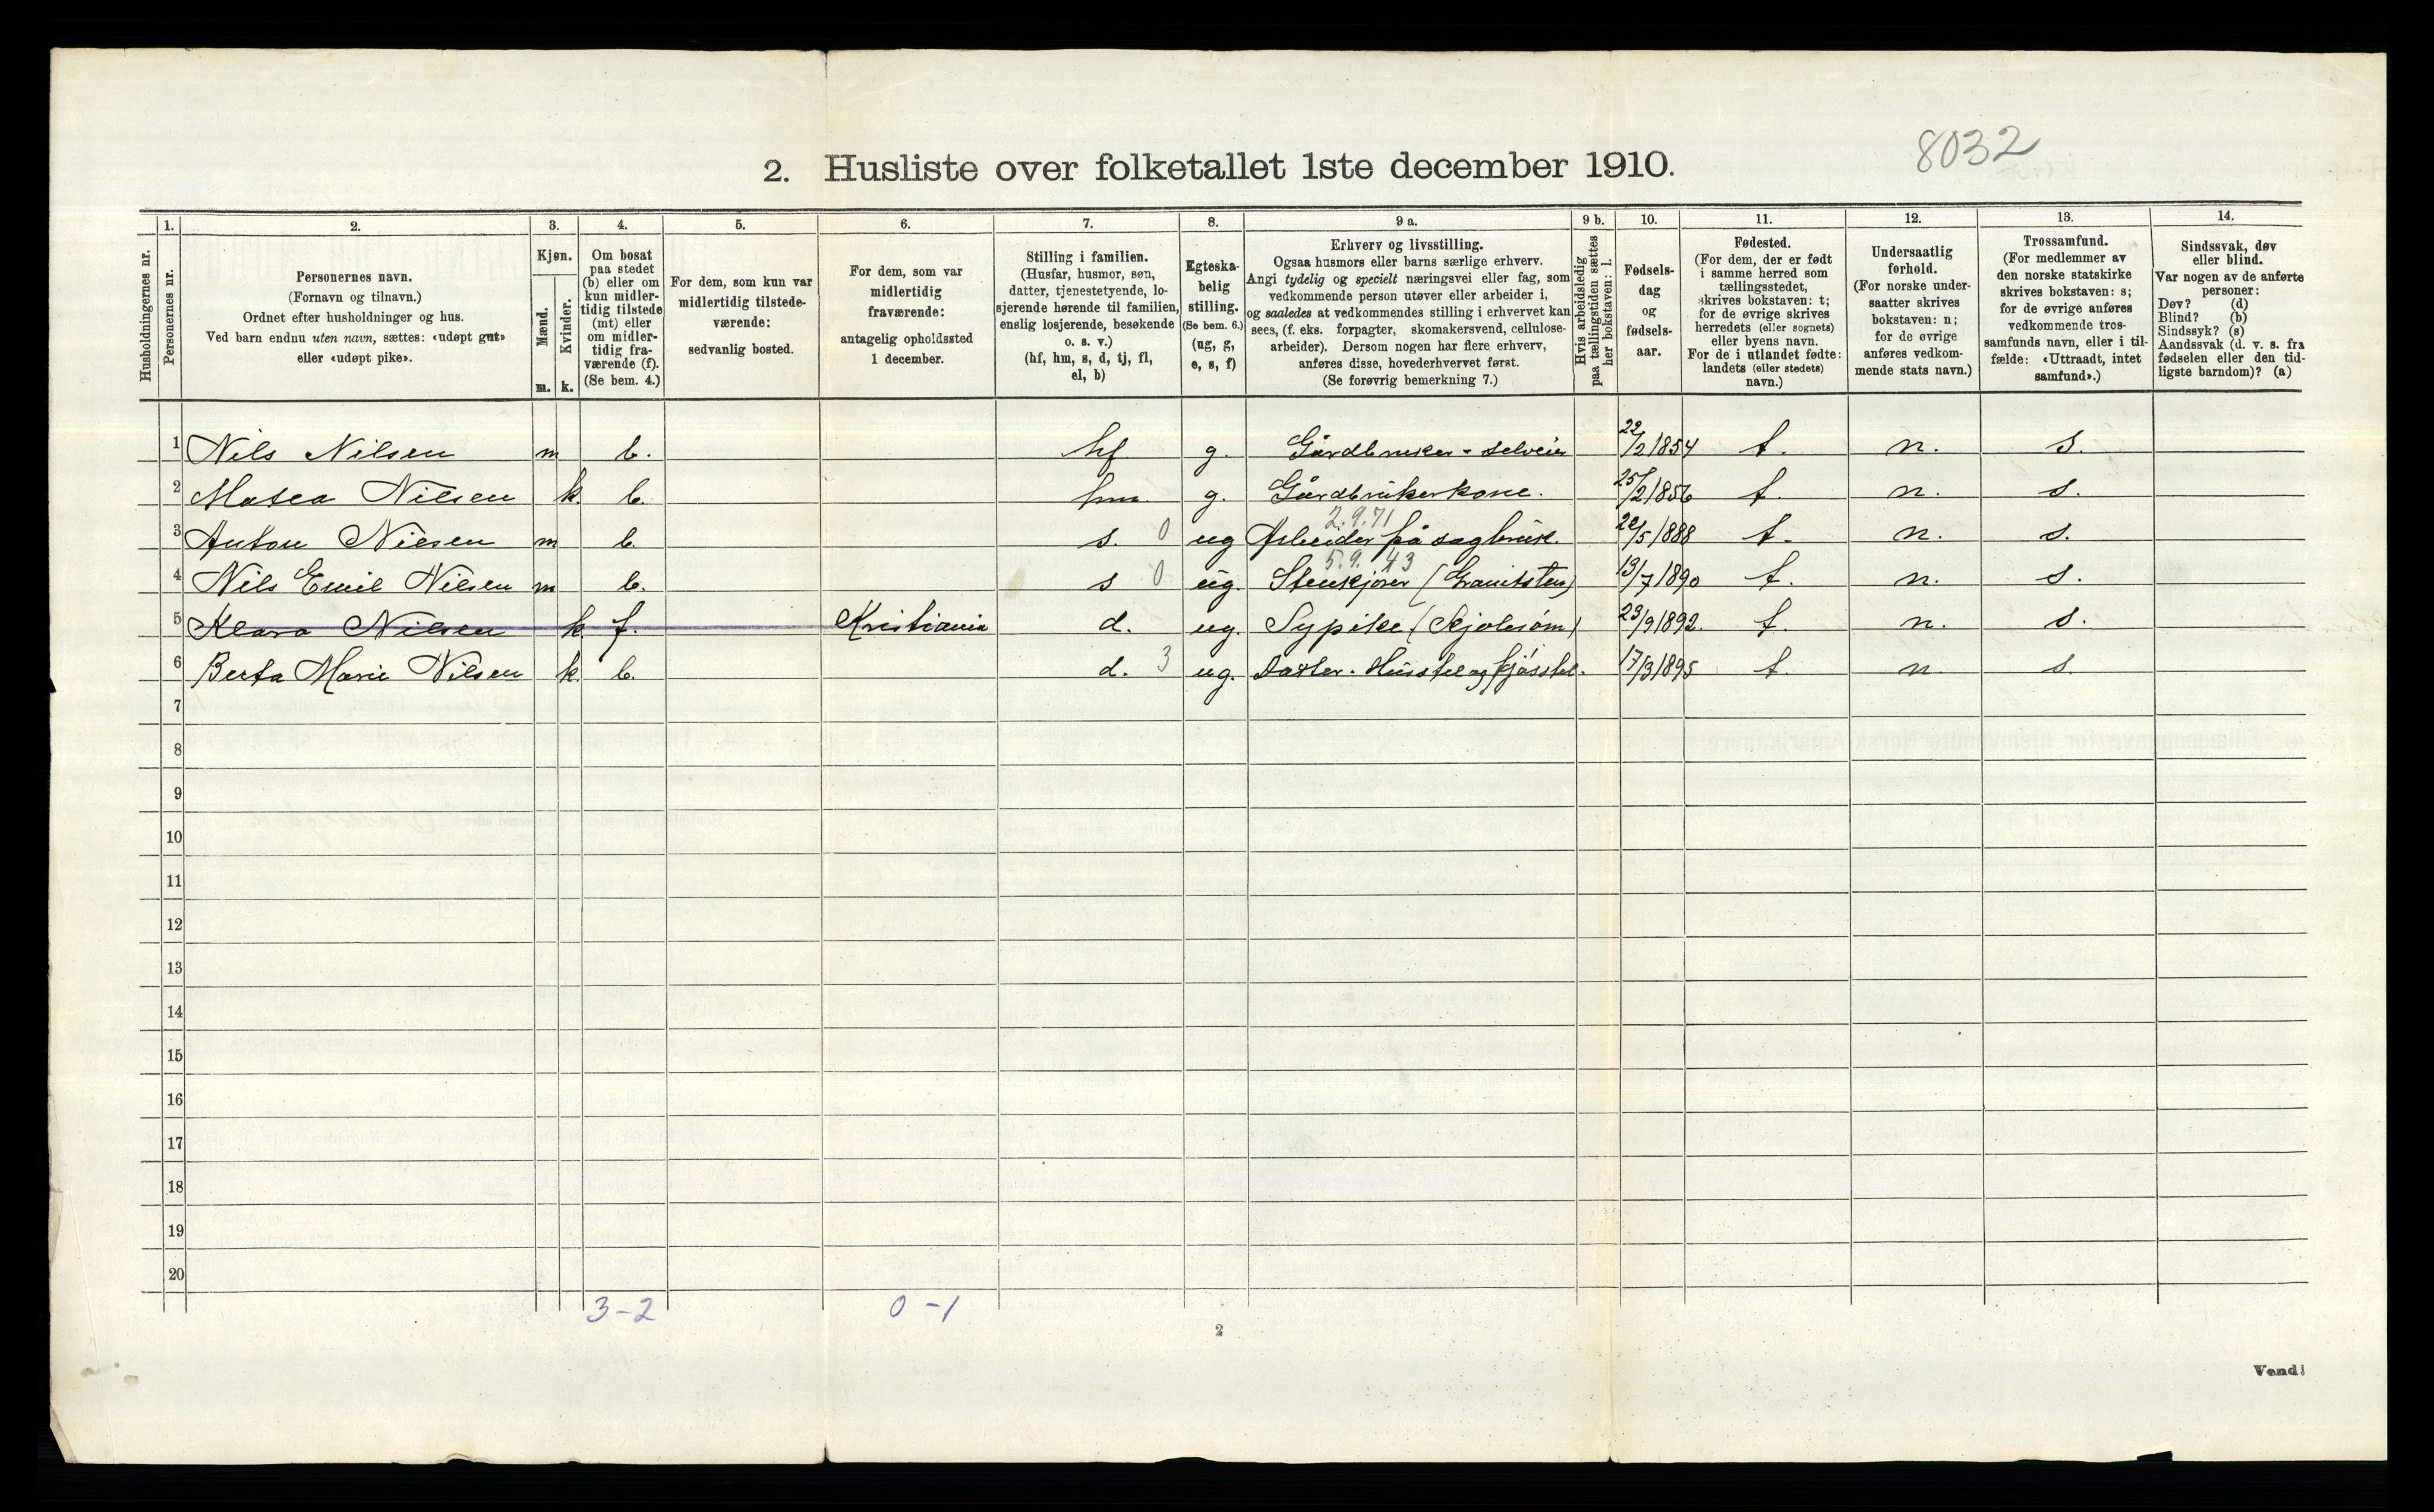 8032
2. Husliste over folketallet 1ste december 1910.
1. 2. 3. 4. 5. 6. 7. 8. 9 a. 9 b. 10. 11. 12. 13. 14.
Husholdningernes nr.
Personernes nr.
Personernes navn.
(Fornavn og tilnavn.)
Ordnet efter husholdninger og hus.
Ved barn endnu uten navn, sættes: «udøpt gut»
eller «udøpt pike».
Kjøn.
Mænd.
m.
Kvinder.
k.
Om bosat
paa stedet
(b) eller om
kun midler-
tidig tilstede
(mt) eller
om midler-
tidig fra-
værende (f).
(Se bem. 4.)
For dem, som kun var
midlertidig tilstede-
værende:
sedvanlig bosted.
For dem, som var
midlertidig
fraværende:
antagelig opholdssted
1 december.
Stilling i familien.
(Husfar, husmor, søn,
datter, tjenestetyende, lo-
sjerende hørende til familien,
enslig losjerende, besøkende
o. s. v.)
(hf, hm, s, d, tj, fl,
el, b)
Egteska-
belig
stilling.
(Se bem. 6.)
(ug, g,
e, s, f)
Erhverv og livsstilling.
Ogsaa husmors eller barns særlige erhverv.
Angi tydelig og specielt næringsvei eller fag, som
vedkommende person utøver eller arbeider i,
og saaledes at vedkommendes stilling i erhvervet kan
sees, (f. eks. forpagter, skomakersvend, cellulose-
arbeider). Dersom nogen har flere erhverv,
anføres disse, hovederhvervet først.
(Se forøvrig bemerkning 7.)
Hvis arbeidsledig
paa tællingstiden sættes
her bokstaven: l.
Fødsels-
dag
og
fødsels-
aar.
Fødested.
(For dem, der er født
i samme herred som
tællingsstedet,
skrives bokstaven: t;
for de øvrige skrives
herredets (eller sognets)
eller byens navn.
For de i utlandet fødte:
landets (eller stedets)
navn.)
Undersaatlig
forhold.
(For norske under-
saatter skrives
bokstaven: n;
for de øvrige
anføres vedkom-
mende stats navn.)
Trossamfund.
(For medlemmer av
den norske statskirke
skrives bokstaven: s;
for de øvrige anføres
vedkommende tros-
samfunds navn, eller i til-
fælde: «Uttraadt, intet
samfund».)
Sindssvak, døv
eller blind.
Var nogen av de anførte
personer:
Døv? (d)
Blind? (b)
Sindssyk? (s)
Aandssvak (d. v. s. fra
fødselen eller den tid-
ligste barndom)? (a)
1 Nils Nilsen m b. hf g. Gårdbruker - selveier 22/2 1854 t. n. s.
2 Matea Nilsen k b. hm g. Gårdbrukerkone. 25/2 1856 t. n. s.
2.9.71
3 Anton Nilsen m b. s. 0 ug Arbeider på sagbruk. 22/5 1888 t. n. s.
5.9.43
4 Nils Emil Nilsen m b. s 0 ug. Stenkjører (Granitsten) 13/7 1890 t. n. s.
5 Klara Nilsen k f. Kristiania d. ug. Sypike (Kjolesøm) 23/9 1892. t. n. s.
6 Berta Marie Nilsen k. b. d. 3 ug. Datter. Husstel og fjøsstel. 17/3 1895 t. n. s.
7
8
9
10
11
12
13
14
15
16
17
18
19
20
3-2 0-1
2
Vend!